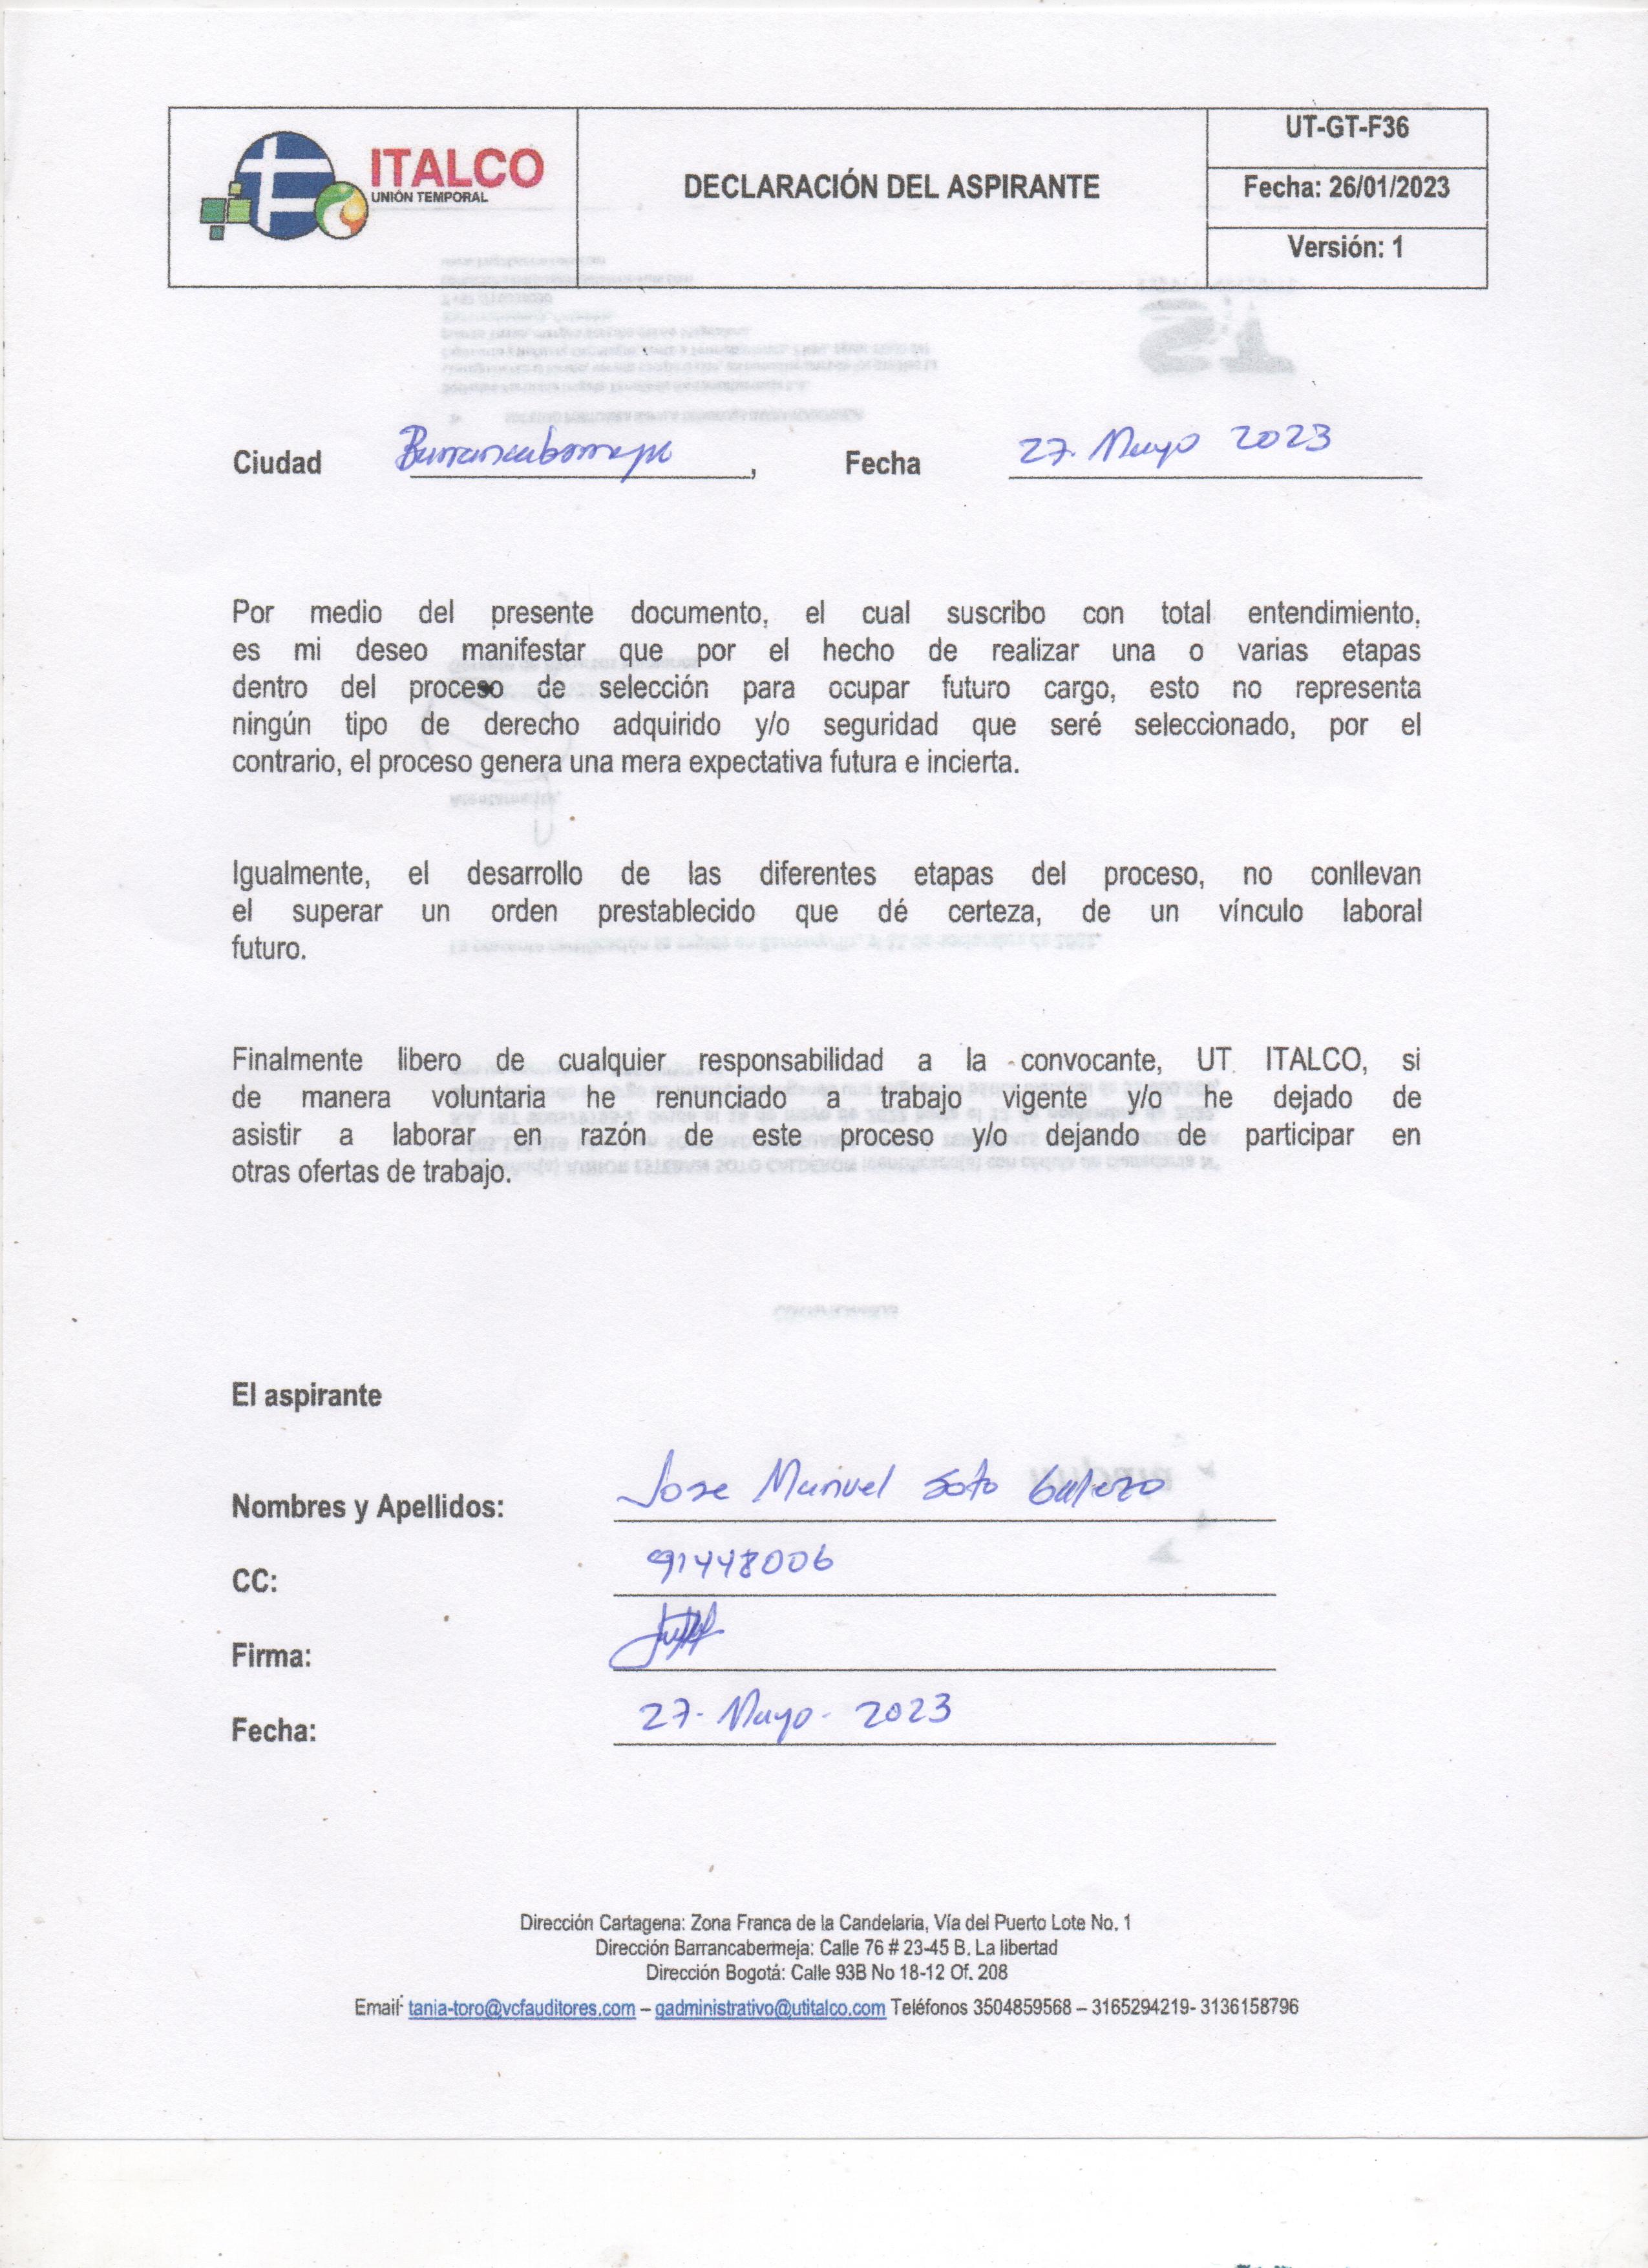 ITALCO
UNIÓN TEMPORAL
DECLARACIÓN DEL ASPIRANTE
UT-GT-F36
Fecha: 26/01/2023
Versión: 1
Ciudad Barrancabermeja, Fecha 27 Mayo 2023
Por medio del presente documento, el cual suscribo con total entendimiento,
es mi deseo manifestar que por el hecho de realizar una o varias etapas
dentro del proceso de selección para ocupar futuro cargo, esto no representa
ningún tipo de derecho adquirido y/o seguridad que seré seleccionado, por el
contrario, el proceso genera una mera expectativa futura e incierta.
Igualmente, el desarrollo de las diferentes etapas del proceso, no conllevan
el superar un orden prestablecido que dé certeza, de un vínculo laboral
futuro.
Finalmente libero de cualquier responsabilidad a la convocante, UT ITALCO, si
de manera voluntaria he renunciado a trabajo vigente y/o he dejado de
asistir a laborar en razón de este proceso y/o dejando de participar en
otras ofertas de trabajo.
El aspirante
Nombres y Apellidos: Jose Manuel Soto
CC: 91448006
Firma:
Fecha: 27-Mayo-2023
Dirección Cartagena: Zona Franca de la Candelaria, Vía del Puerto Lote No. 1
Dirección Barrancabermeja: Calle 76 # 23-45 B. La libertad
Dirección Bogotá: Calle 93B No 18-12 Of. 208
Email: tania-toro@vcfauditores.com – gadministrativo@utitalco.com Teléfonos 3504859568 – 3165294219- 3136158796